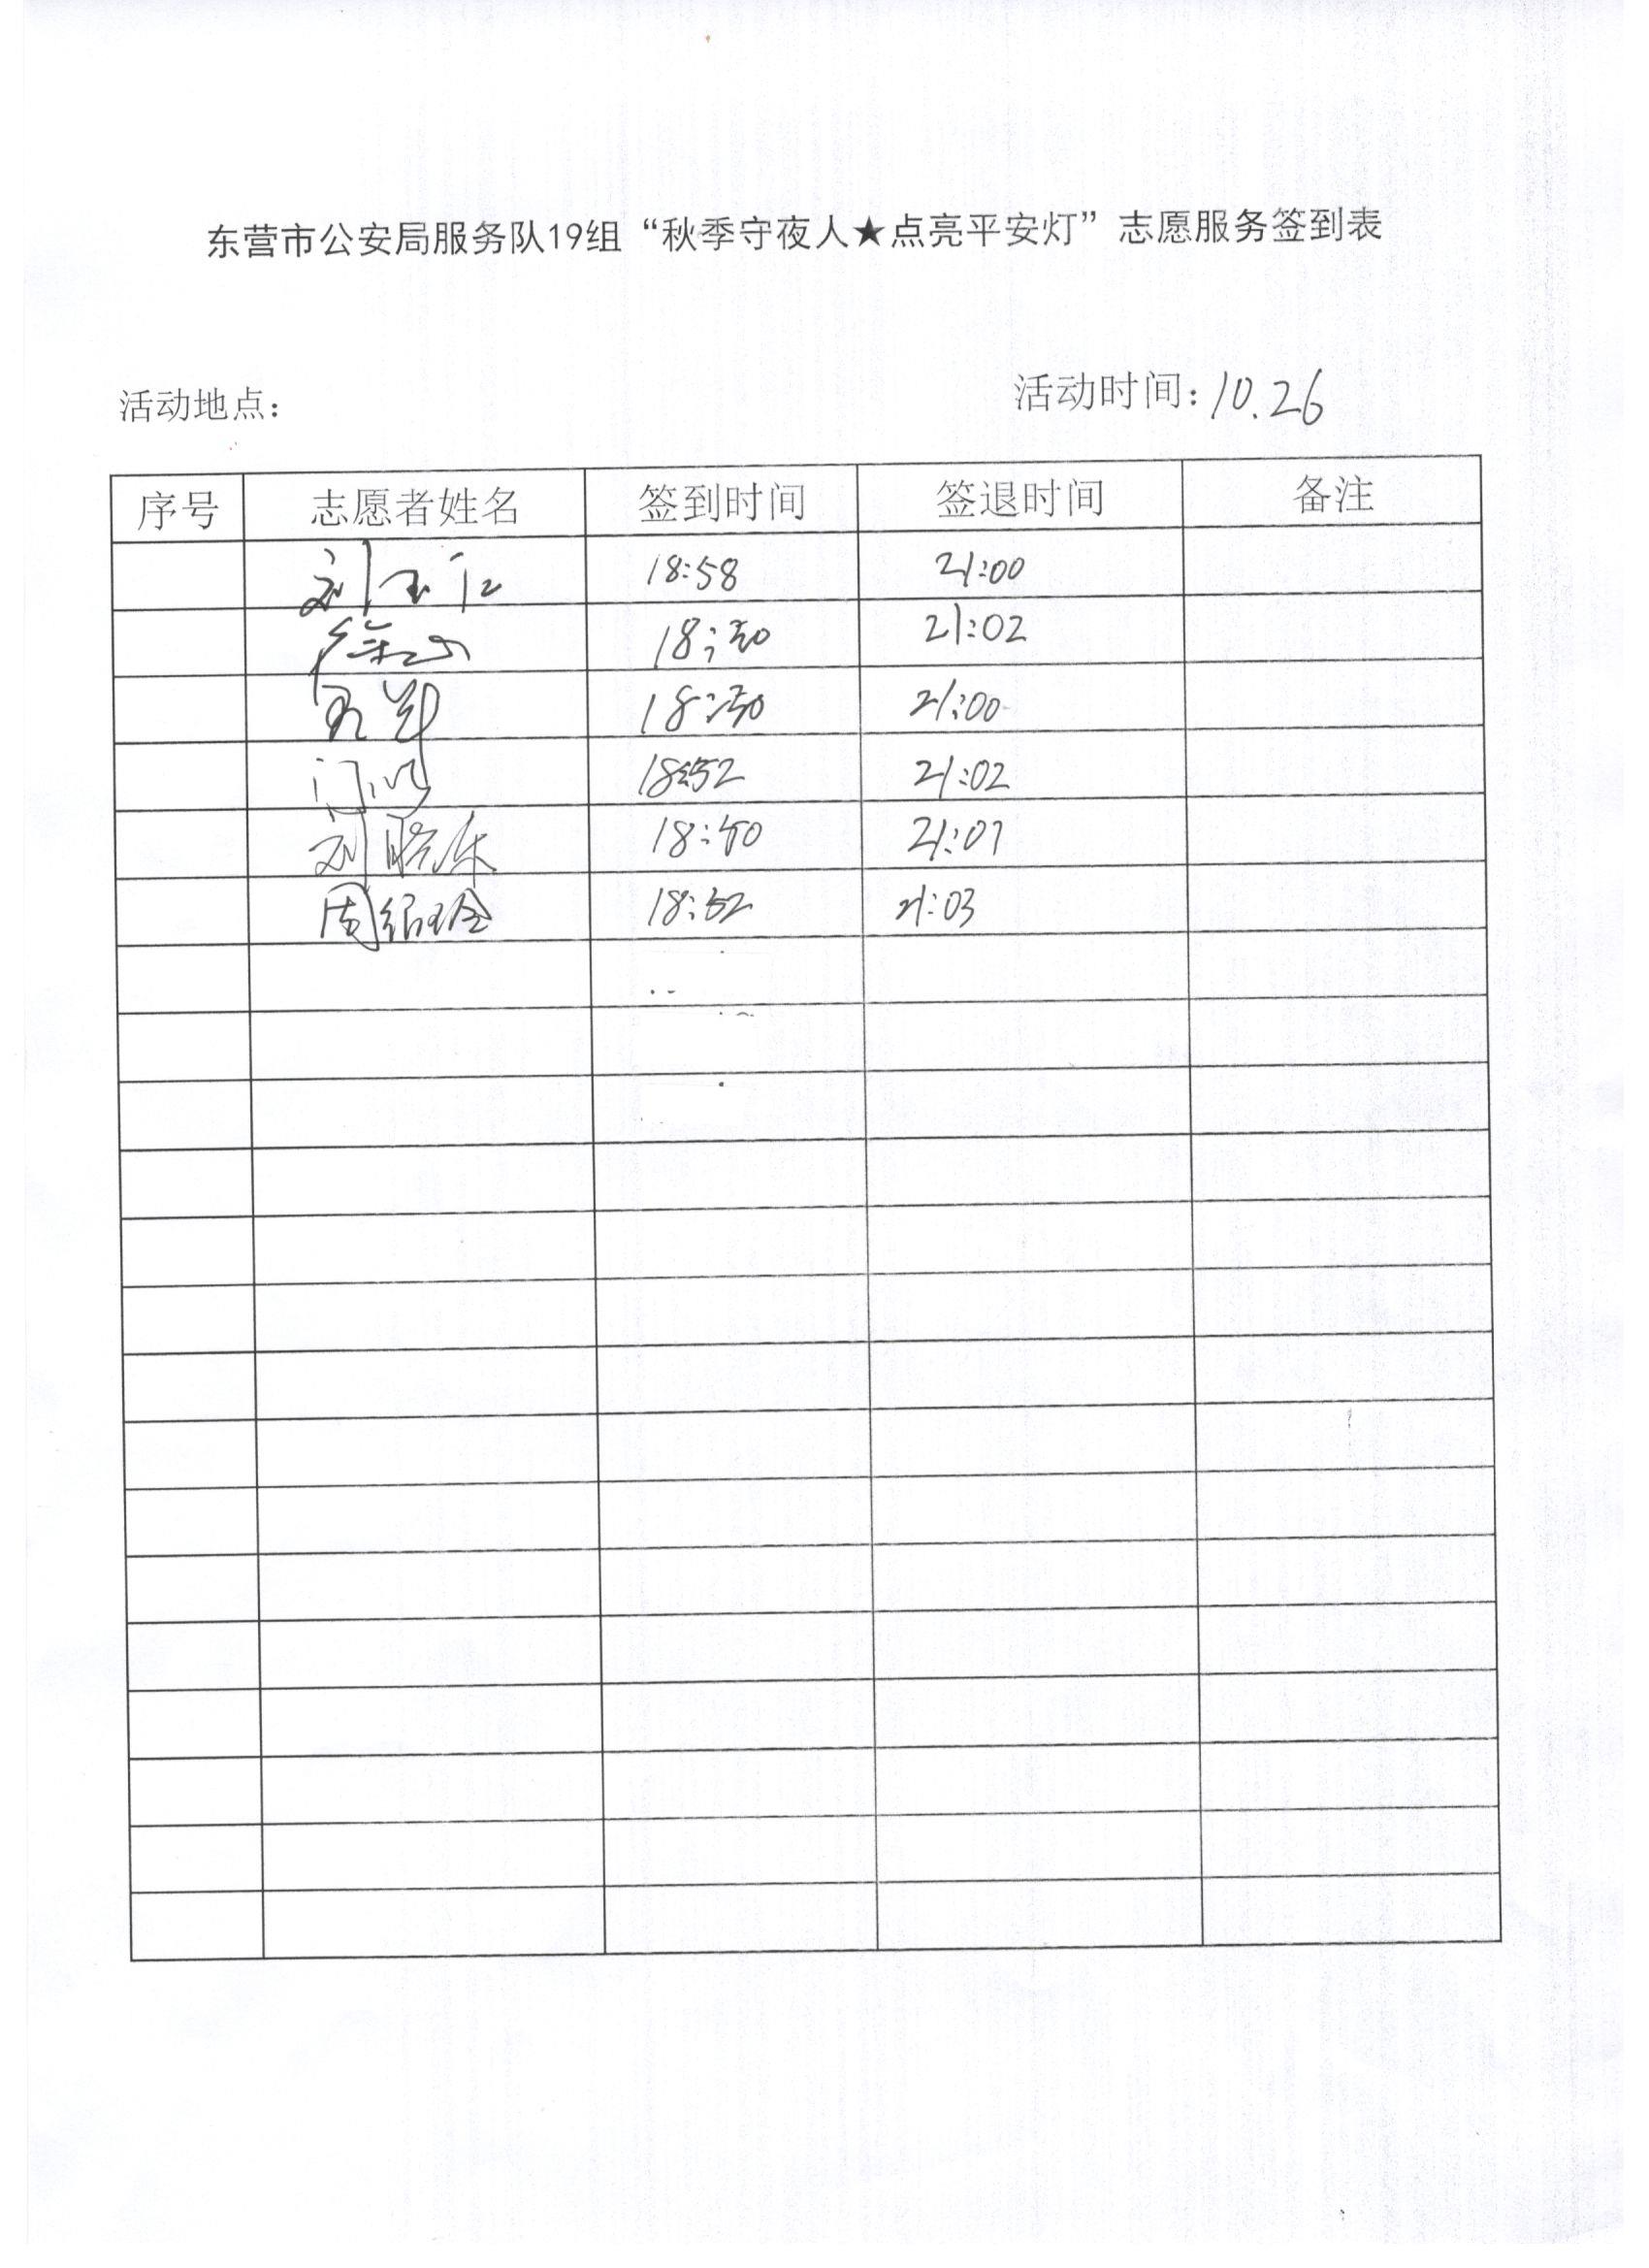 东营市公安局服务队19组“秋季守夜人★点亮平安灯”志愿服务签到表
活动地点： 活动时间：10.26
序号 志愿者姓名 签到时间 签退时间 备注
刘玉仁 18:58 21:00
徐 18:50 21:02
18:50 21:00
18:52 21:02
刘 18:40 21:01
周绍玲 18:52 21:03